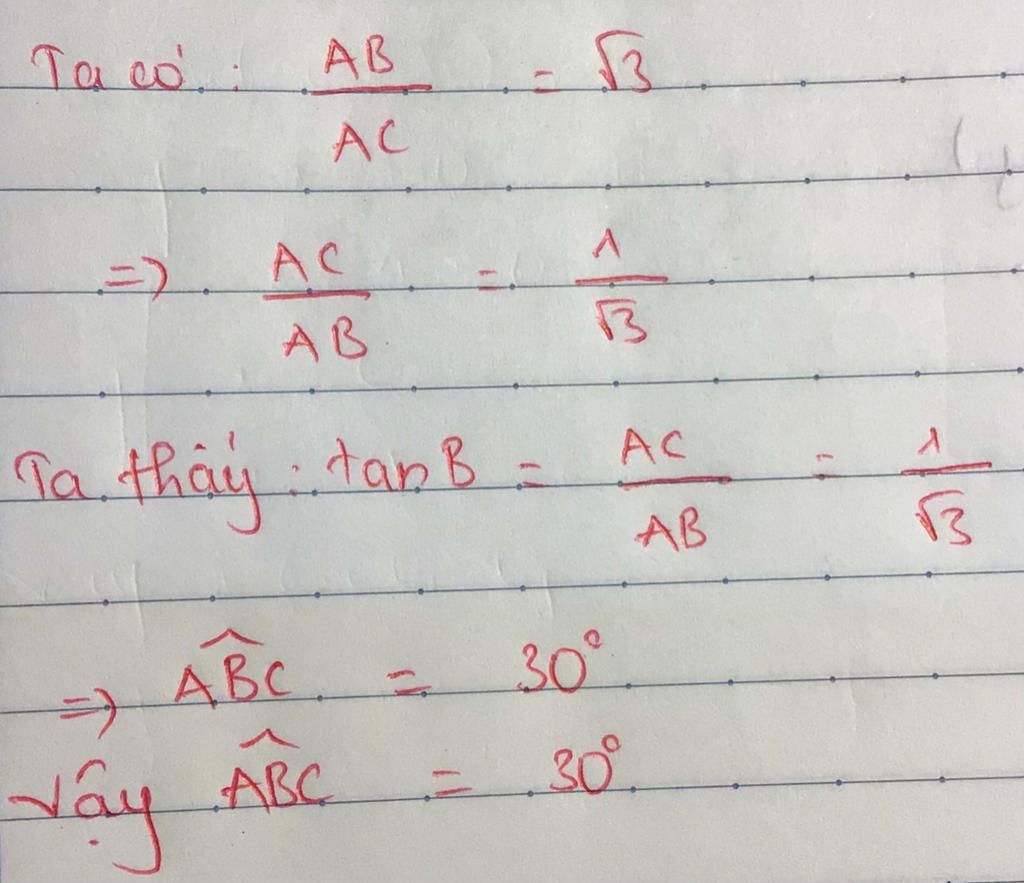 Ta có : AB / AC = √3
=> AC / AB = 1 / √3
Ta thấy : tan B = AC / AB = 1 / √3
=> ABC^ = 30°
Vậy ABC^ = 30°